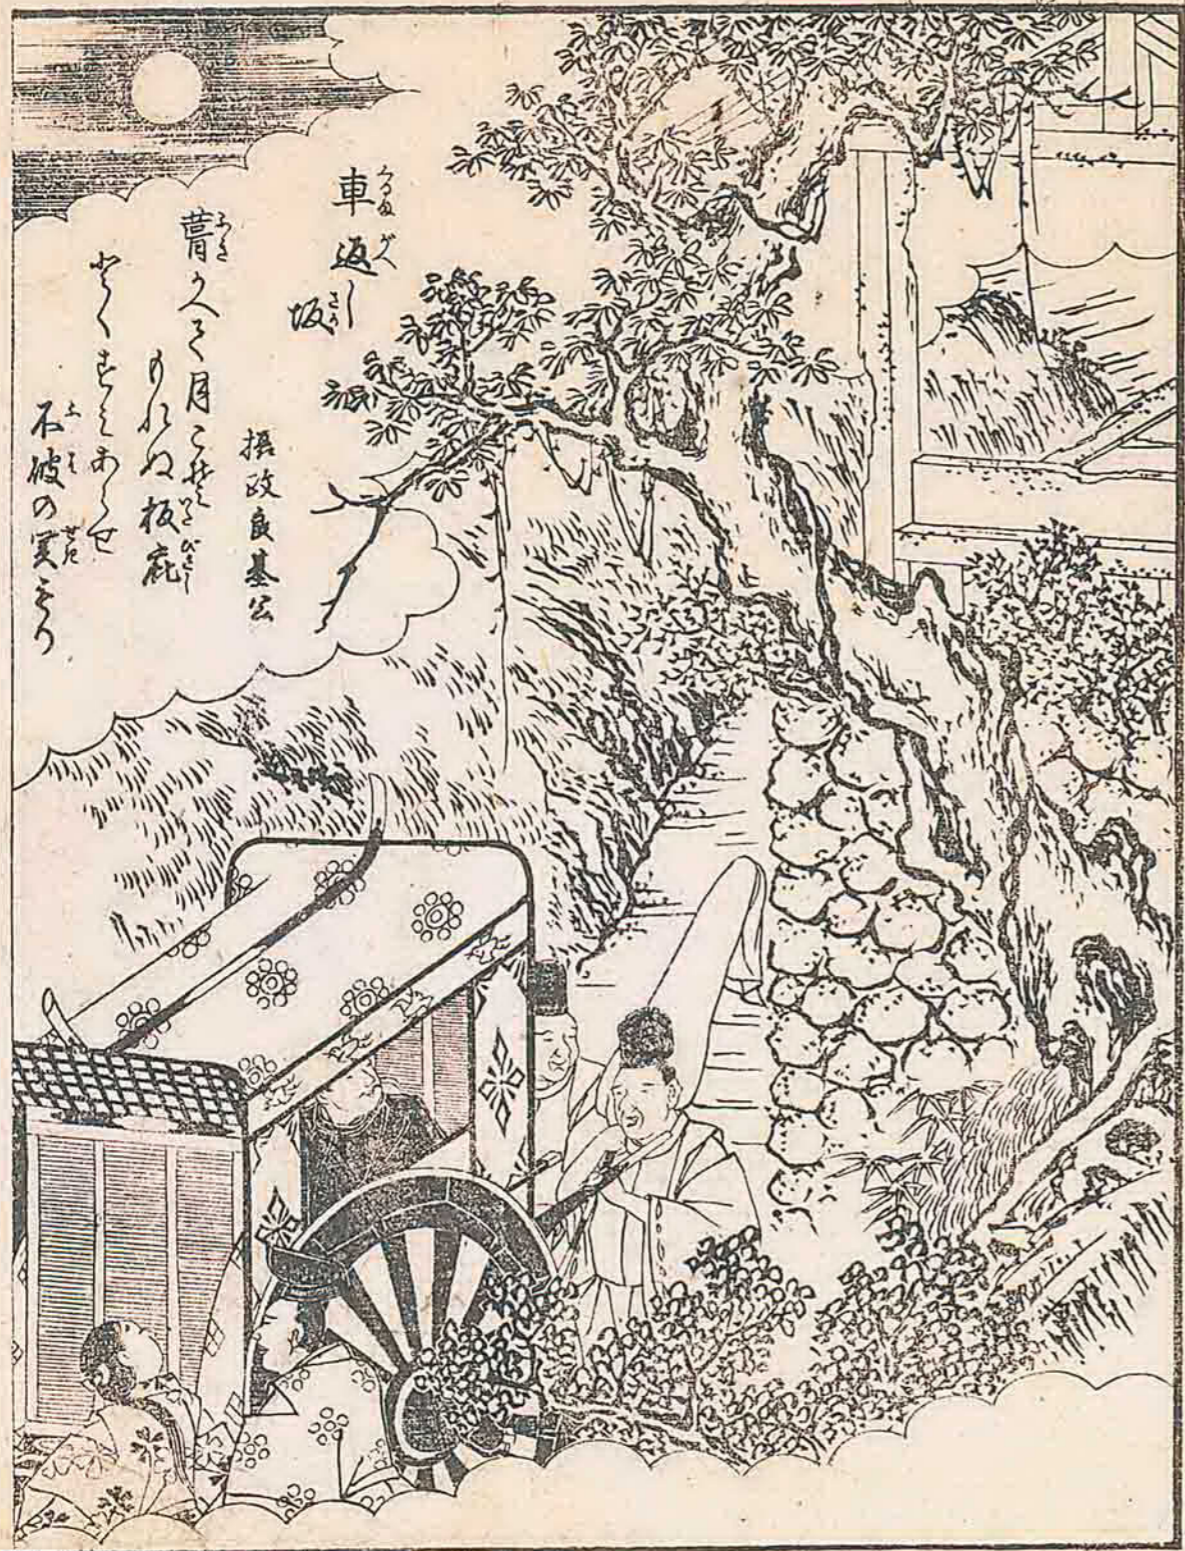 車返し
坂
摂政良基公
葺かへて月こそ
もれぬ板庇
とくすみあらせ
不破の関もり